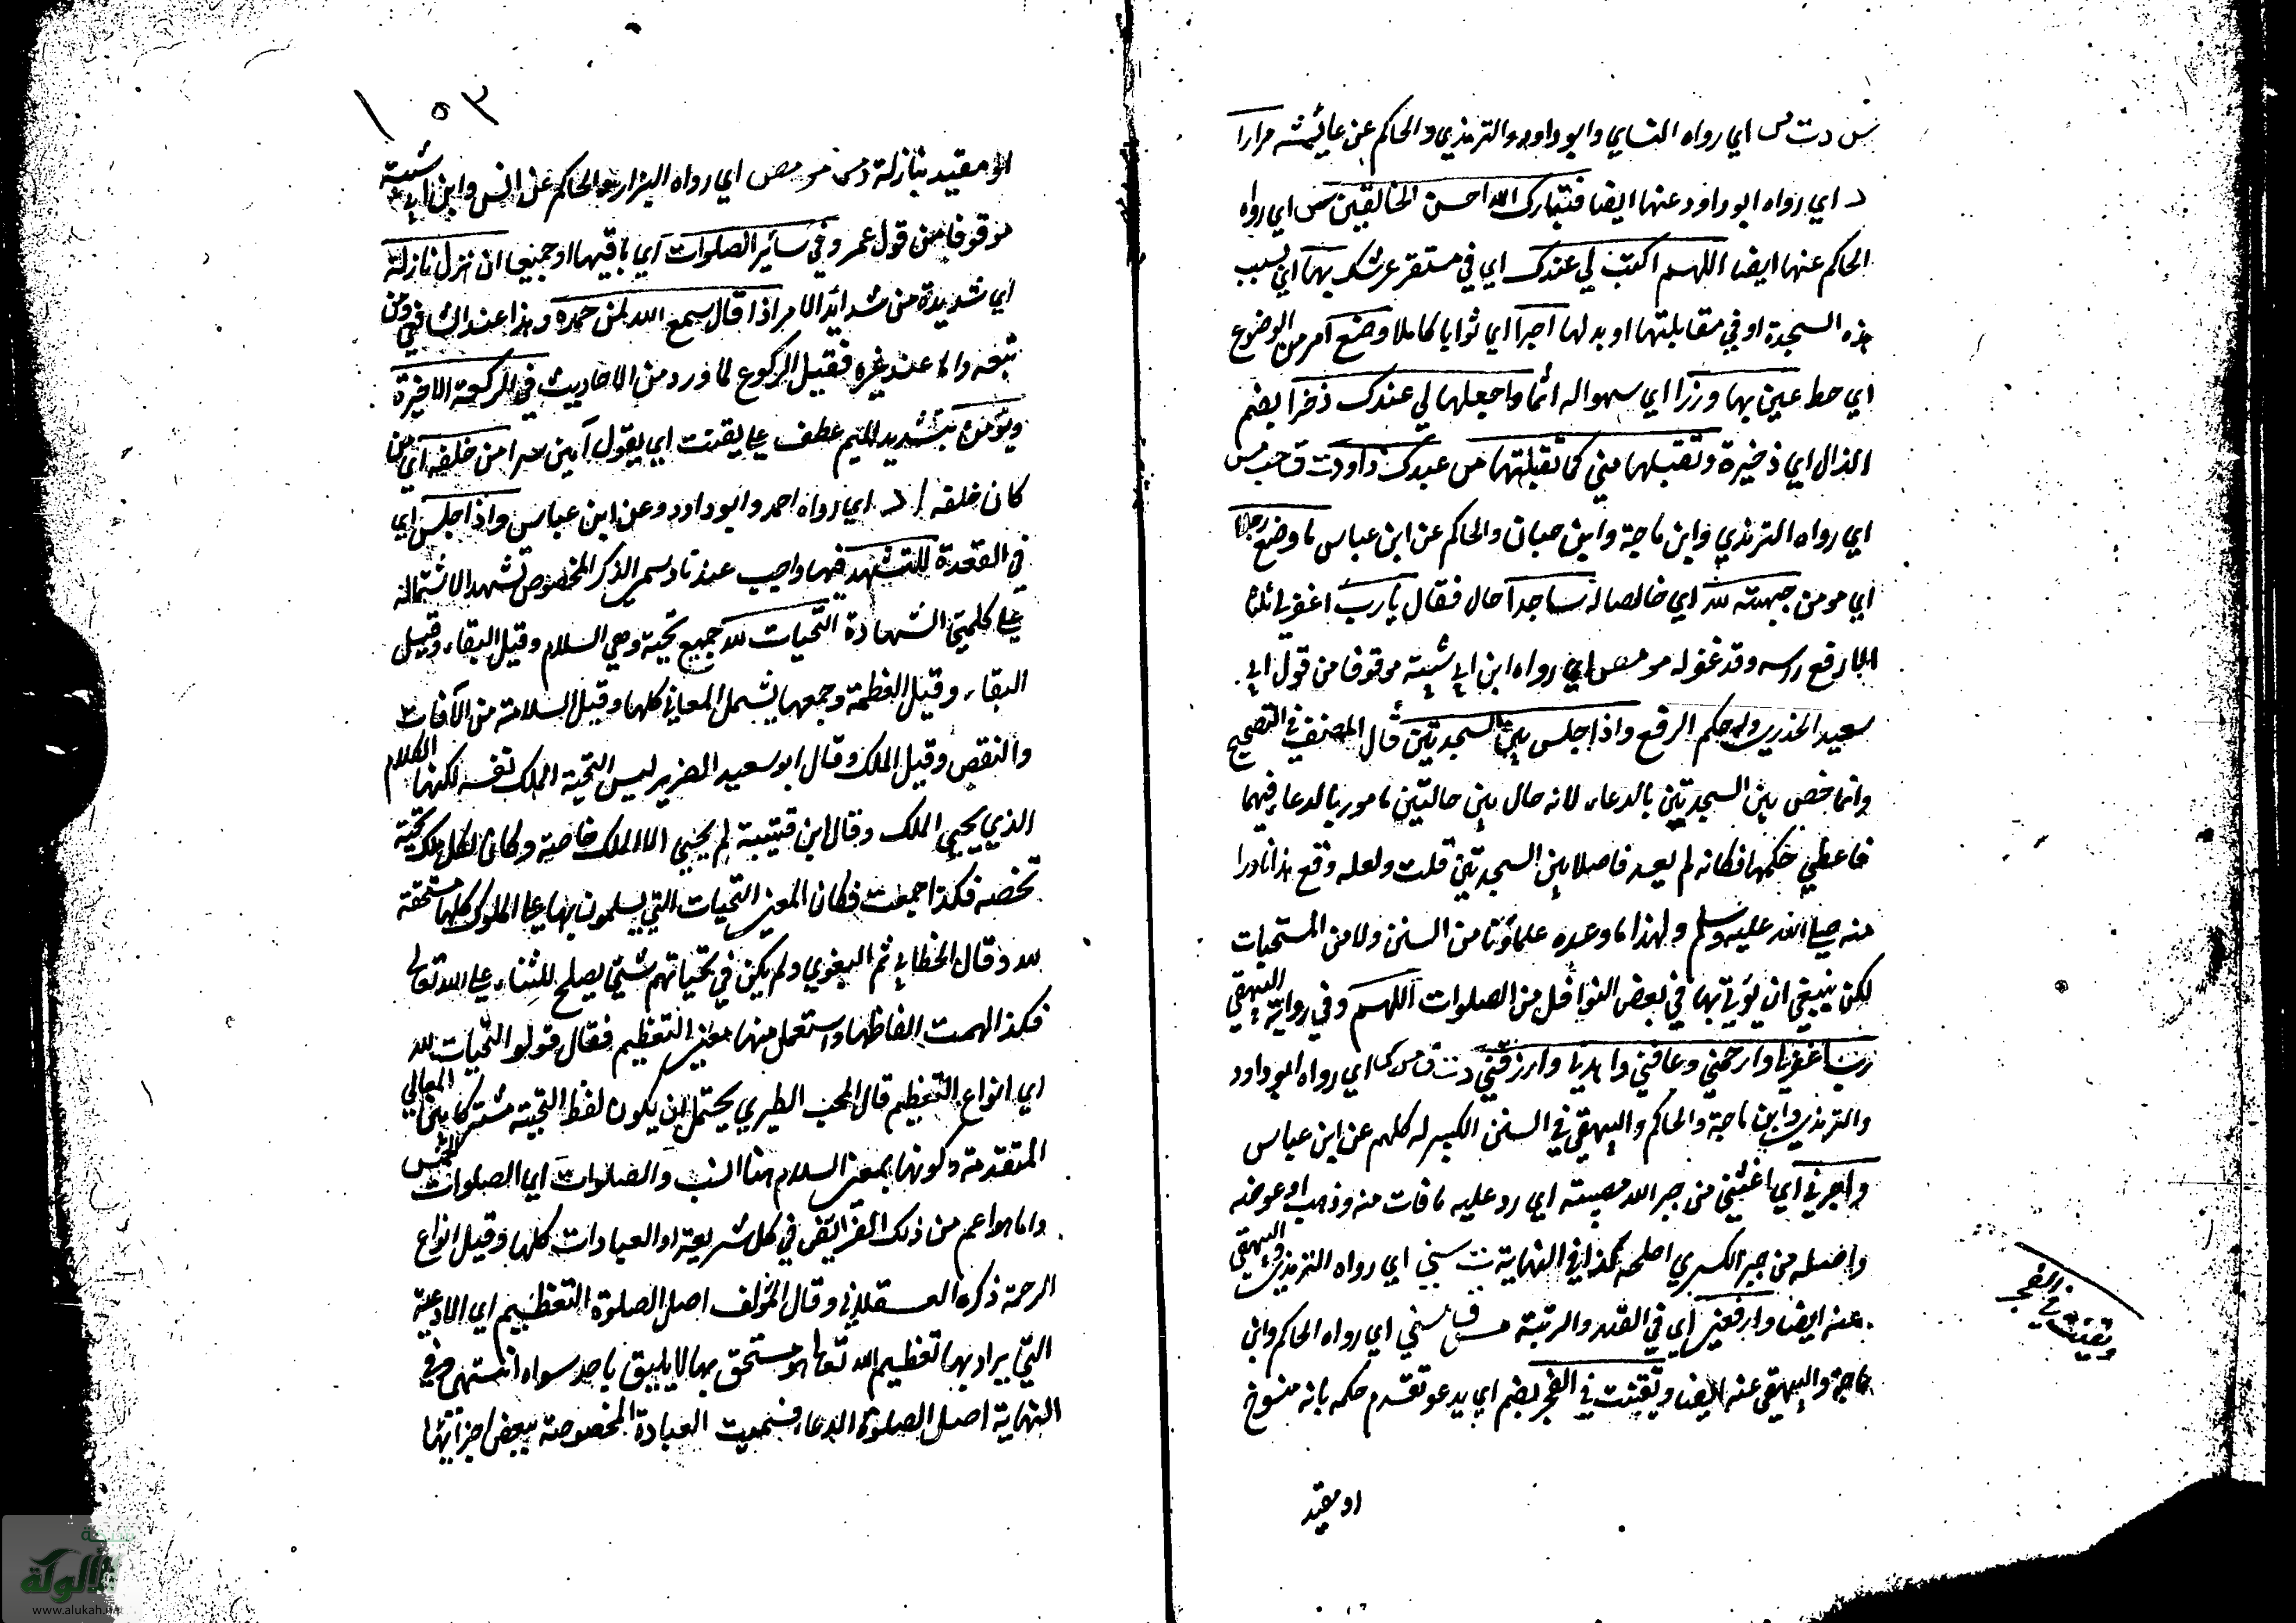 س د ت مس اي رواه النساي وابو داود والترمذي والحاكم عن عايشه مرارا
د اي رواه ابو داود عنها ايضا فتبارك الله احسن الخالقين مس اي رواه
الحاكم عنها ايضا اللهم اكتب لي عندك اي في مستقر عرشك بها اي بسبب
هذه السجدة او في مقابلتها او بدلها اجرا اي ثوابا كاملا وضع امر من الوضوع
اي حط عني بها وزرا اي سهوا له اثما واجعلها لي عندك ذخرا بضم
الذال اي ذخيرة وتقبلها مني كما تقبلتها من عبدك داود ت ق حب مس
اي رواه الترمذي وابن ماجة وابن حبان والحاكم عن ابن عباس ما وضع رجل
اي مومن جبهته لله اي خالصا له ساجدا حال فقال يا رب اغفر لي ثلثا
الا رفع راسه وقد غفر له مو مص اي رواه ابن ابي شيبة موقوفا من قول ابي
سعيد الخدري وله حكم الرفع واذا جلس بين السجدتين قال المصنف في التصحيح
وانما خص بين السجدتين بالدعاء لانه حال بين حالتين مامور بالدعاء فيهما
فاعطي حكمها فكانه لم يعد فاصلا بين السجدتين قلت ولعله وقع هذا نادرا
منه صلى الله عليه وسلم ولهذا ما وعده علماؤنا من السنن ولا من المستحبات
لكن ينبغي ان يؤتي بها في بعض النوافل من الصلوات اللهم وفي رواية البيهقي
رب اغفر لي وارحمني وعافني واهدني وارزقني د ت ق مس كي اي رواه ابو داود
والترمذي وابن ماجة والحاكم والبيهقي في السنن الكبير له كلهم عن ابن عباس
واجبرني اي اغثني من جبر الله مصيبته اي رد عليه ما فات منه وذهب او عوضه
واصله من جبر الكسر اي اصلحه كذا في النهاية ت سني اي رواه الترمذي والبيهقي
عنه ايضا وارفعني اي في القدر والرتبة مس ق سني اي رواه الحاكم وابن
ماجة والبيهقي عنه ايضا وتقنت في الفجر بضم اي يدعو تقدم حكمه بانه منسوخ
او مقيد
وتقنت في الفجر
١٥٣
او مقيد بنازلة مس مو مص اي رواه البزار والحاكم عن انس وابن ابي شيبة
موقوفا من قول عمر وفي سائر الصلوات اي باقيها او جميعا ان نزل نازلة
اي شديدة من شدائد الامر اذا قال سمع الله لمن حمده وهذا عند الشافعي ومن
تبعه واما عند غيره فقبل الركوع لما ورد من الاحاديث في الركعة الاخيرة
ويؤمن بتشديد الميم عطف على يقنت اي يقول آمين سرا من خلفه اي من
كان خلفه ا د اي رواه احمد وابو داود وعن ابن عباس واذا جلس اي
في القعدة للتشهد فيها واجب عندنا وسمي الذكر المخصوص تشهد الاشتماله
على كلمتي الشهادة التحيات لله جمع تحية وهي السلام وقيل البقاء وقيل
البقاء وقيل العظمة وجمعها يشمل المعاني كلها وقيل السلامة من الآفات
والنقص وقيل الملك وقال ابو سعيد الضرير ليس التحية الملك نفسه لكنها الكلام
الذي يحيي الملك وقال ابن قتيبة لم يحيي الا الملك خاصة وكان لكل ملك تحية
تخصه فلذا جمعت فكان المعني التحيات التي يسلمون بها على الملوك كلها مستحقة
لله وقال الخطابي ثم البغوي ولم يكن في تحياتهم شيئ يصلح للثناء على الله تعالى
فلذا ابهمت الفاظها واستعمل منها معنى التعظيم فقال قولوا التحيات لله
اي انواع التعظيم قال المحب الطبري يحتمل ان يكون لفظ التحية مشتركا بين المعاني
المتقدمة وكونها بمعنى السلام هنا انسب والصلوات اي الصلوات الخمس
واما هو اعم من ذلك الفرائض في كل شريعة او العبادات كلها وقيل انواع
الرحمة ذكره العسقلاني وقال المؤلف اصل الصلوة التعظيم اي الادعية
التي يراد بها تعظيم الله تعالى هو مستحق بها لا يليق باحد سواه انتهى وفي
النهاية اصل الصلوة الدعاء فسميت العبادة المخصوصة ببعض اجزائها
شبكة
الألوكة
www.alukah.net